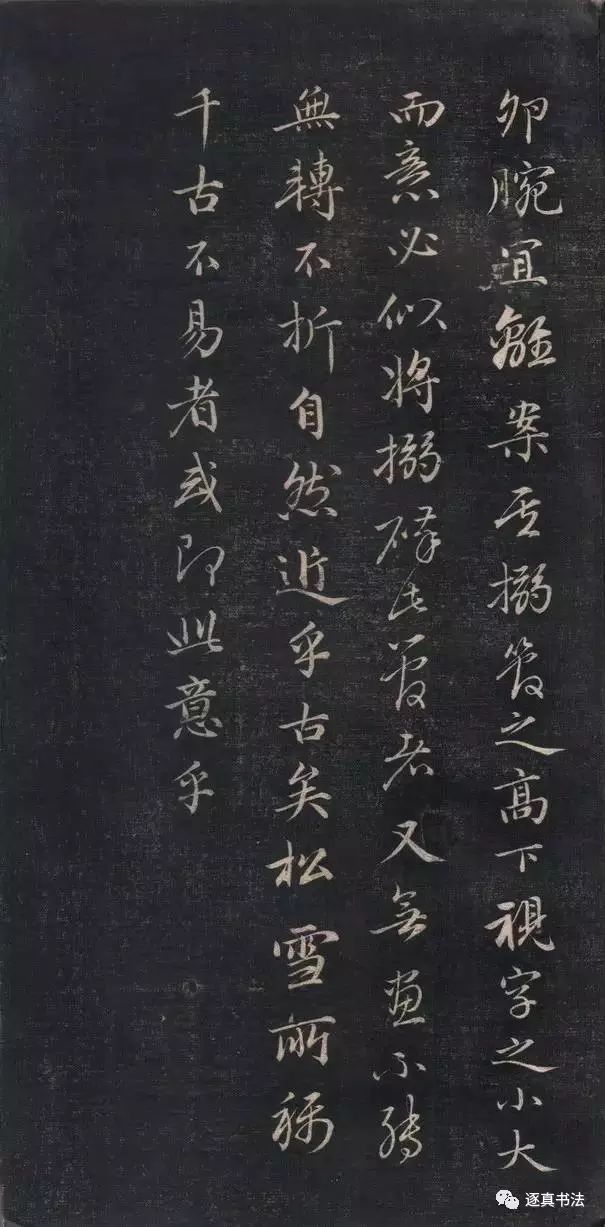 腕宜離案至搦管之高下視字之小大
而意必似將搦碎此管者又無畫不轉
無轉不折自然近乎古矣松雪所稱
千古不易者或即此意乎
逐真书法